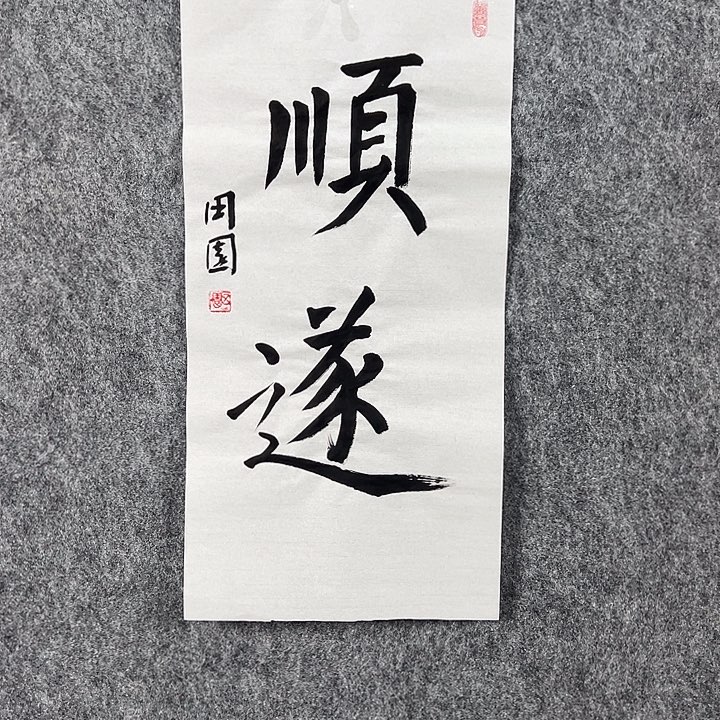 順遂
田園